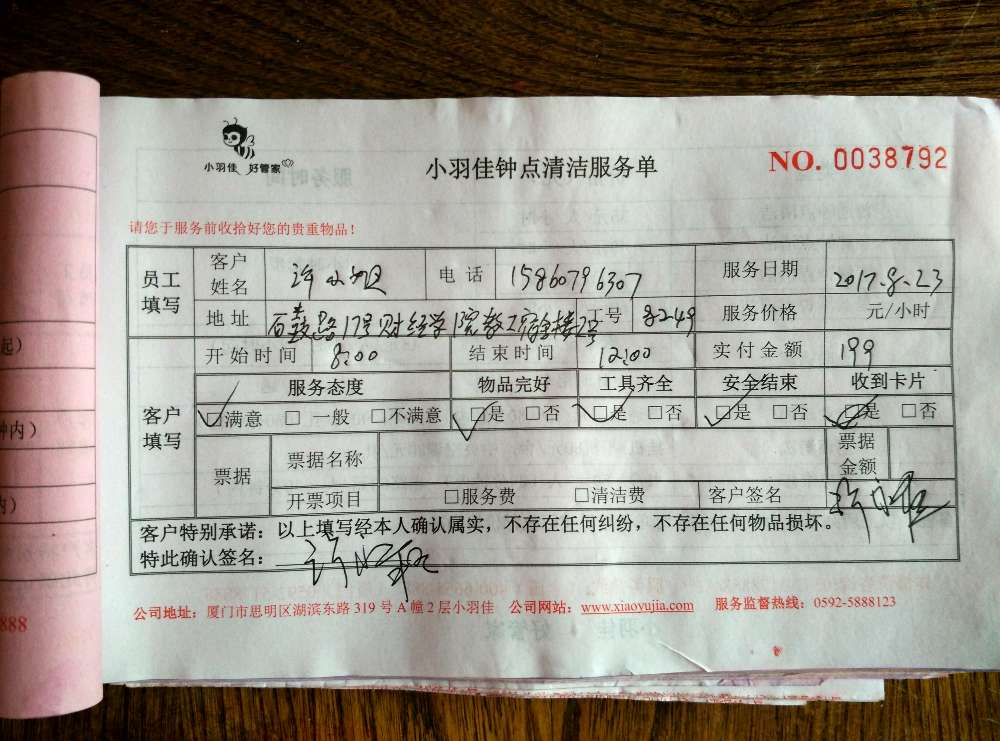 小羽佳 好管家
小羽佳钟点清洁服务单
NO. 0038792
请您于服务前收拾好您的贵重物品!
员工填写 客户姓名 许小姐 电话 15860796307 服务日期 2017.8.23
地址 石鼓路17号财经学院教工宿舍楼2号 工号 8249 服务价格 元/小时
客户填写 开始时间 8:00 结束时间 12:00 实付金额 199
服务态度 物品完好 工具齐全 安全结束 收到卡片
☑满意 □ 一般 □不满意 ☑是 □否 ☑是 □否 ☑是 □否 ☑是 □否
票据 票据名称 票据金额
开票项目 □服务费 □清洁费 客户签名
客户特别承诺:以上填写经本人确认属实,不存在任何纠纷,不存在任何物品损坏。
特此确认签名:
公司地址:厦门市思明区湖滨东路 319 号 A 幢 2 层小羽佳 公司网站:www.xiaoyujia.com 服务监督热线:0592-5888123
起)
钟内)
内)
888